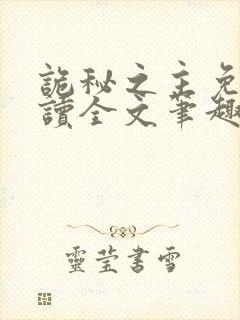 詭秘之主免
讀全文筆趣
靈瑩書雪